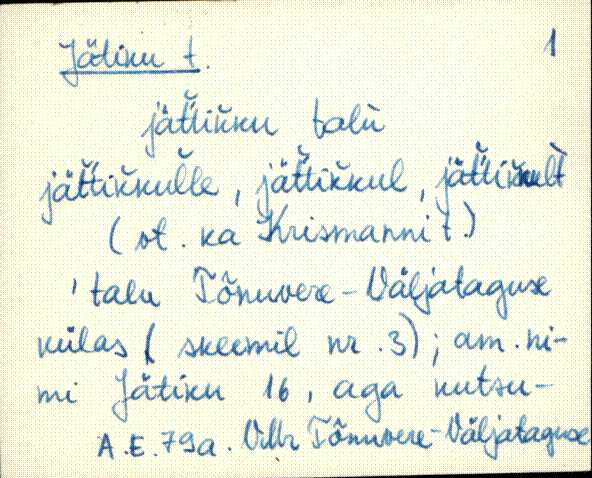 Jätiku t. 1
jät̆t̆ik̆ku talù
jät̆t̆ik̆kul̆le, jät̆t̆ik̆kul, jät̆t̆ik̆kult
(vt. ka Krismanni t.)
'talu Tõnuvere-Väljataguse
külas ( skeemil nr. 3); am. ni-
mi Jätiku 16, aga kutsu-
A.E. 79a. VMr Tõnuvere-Väljataguse